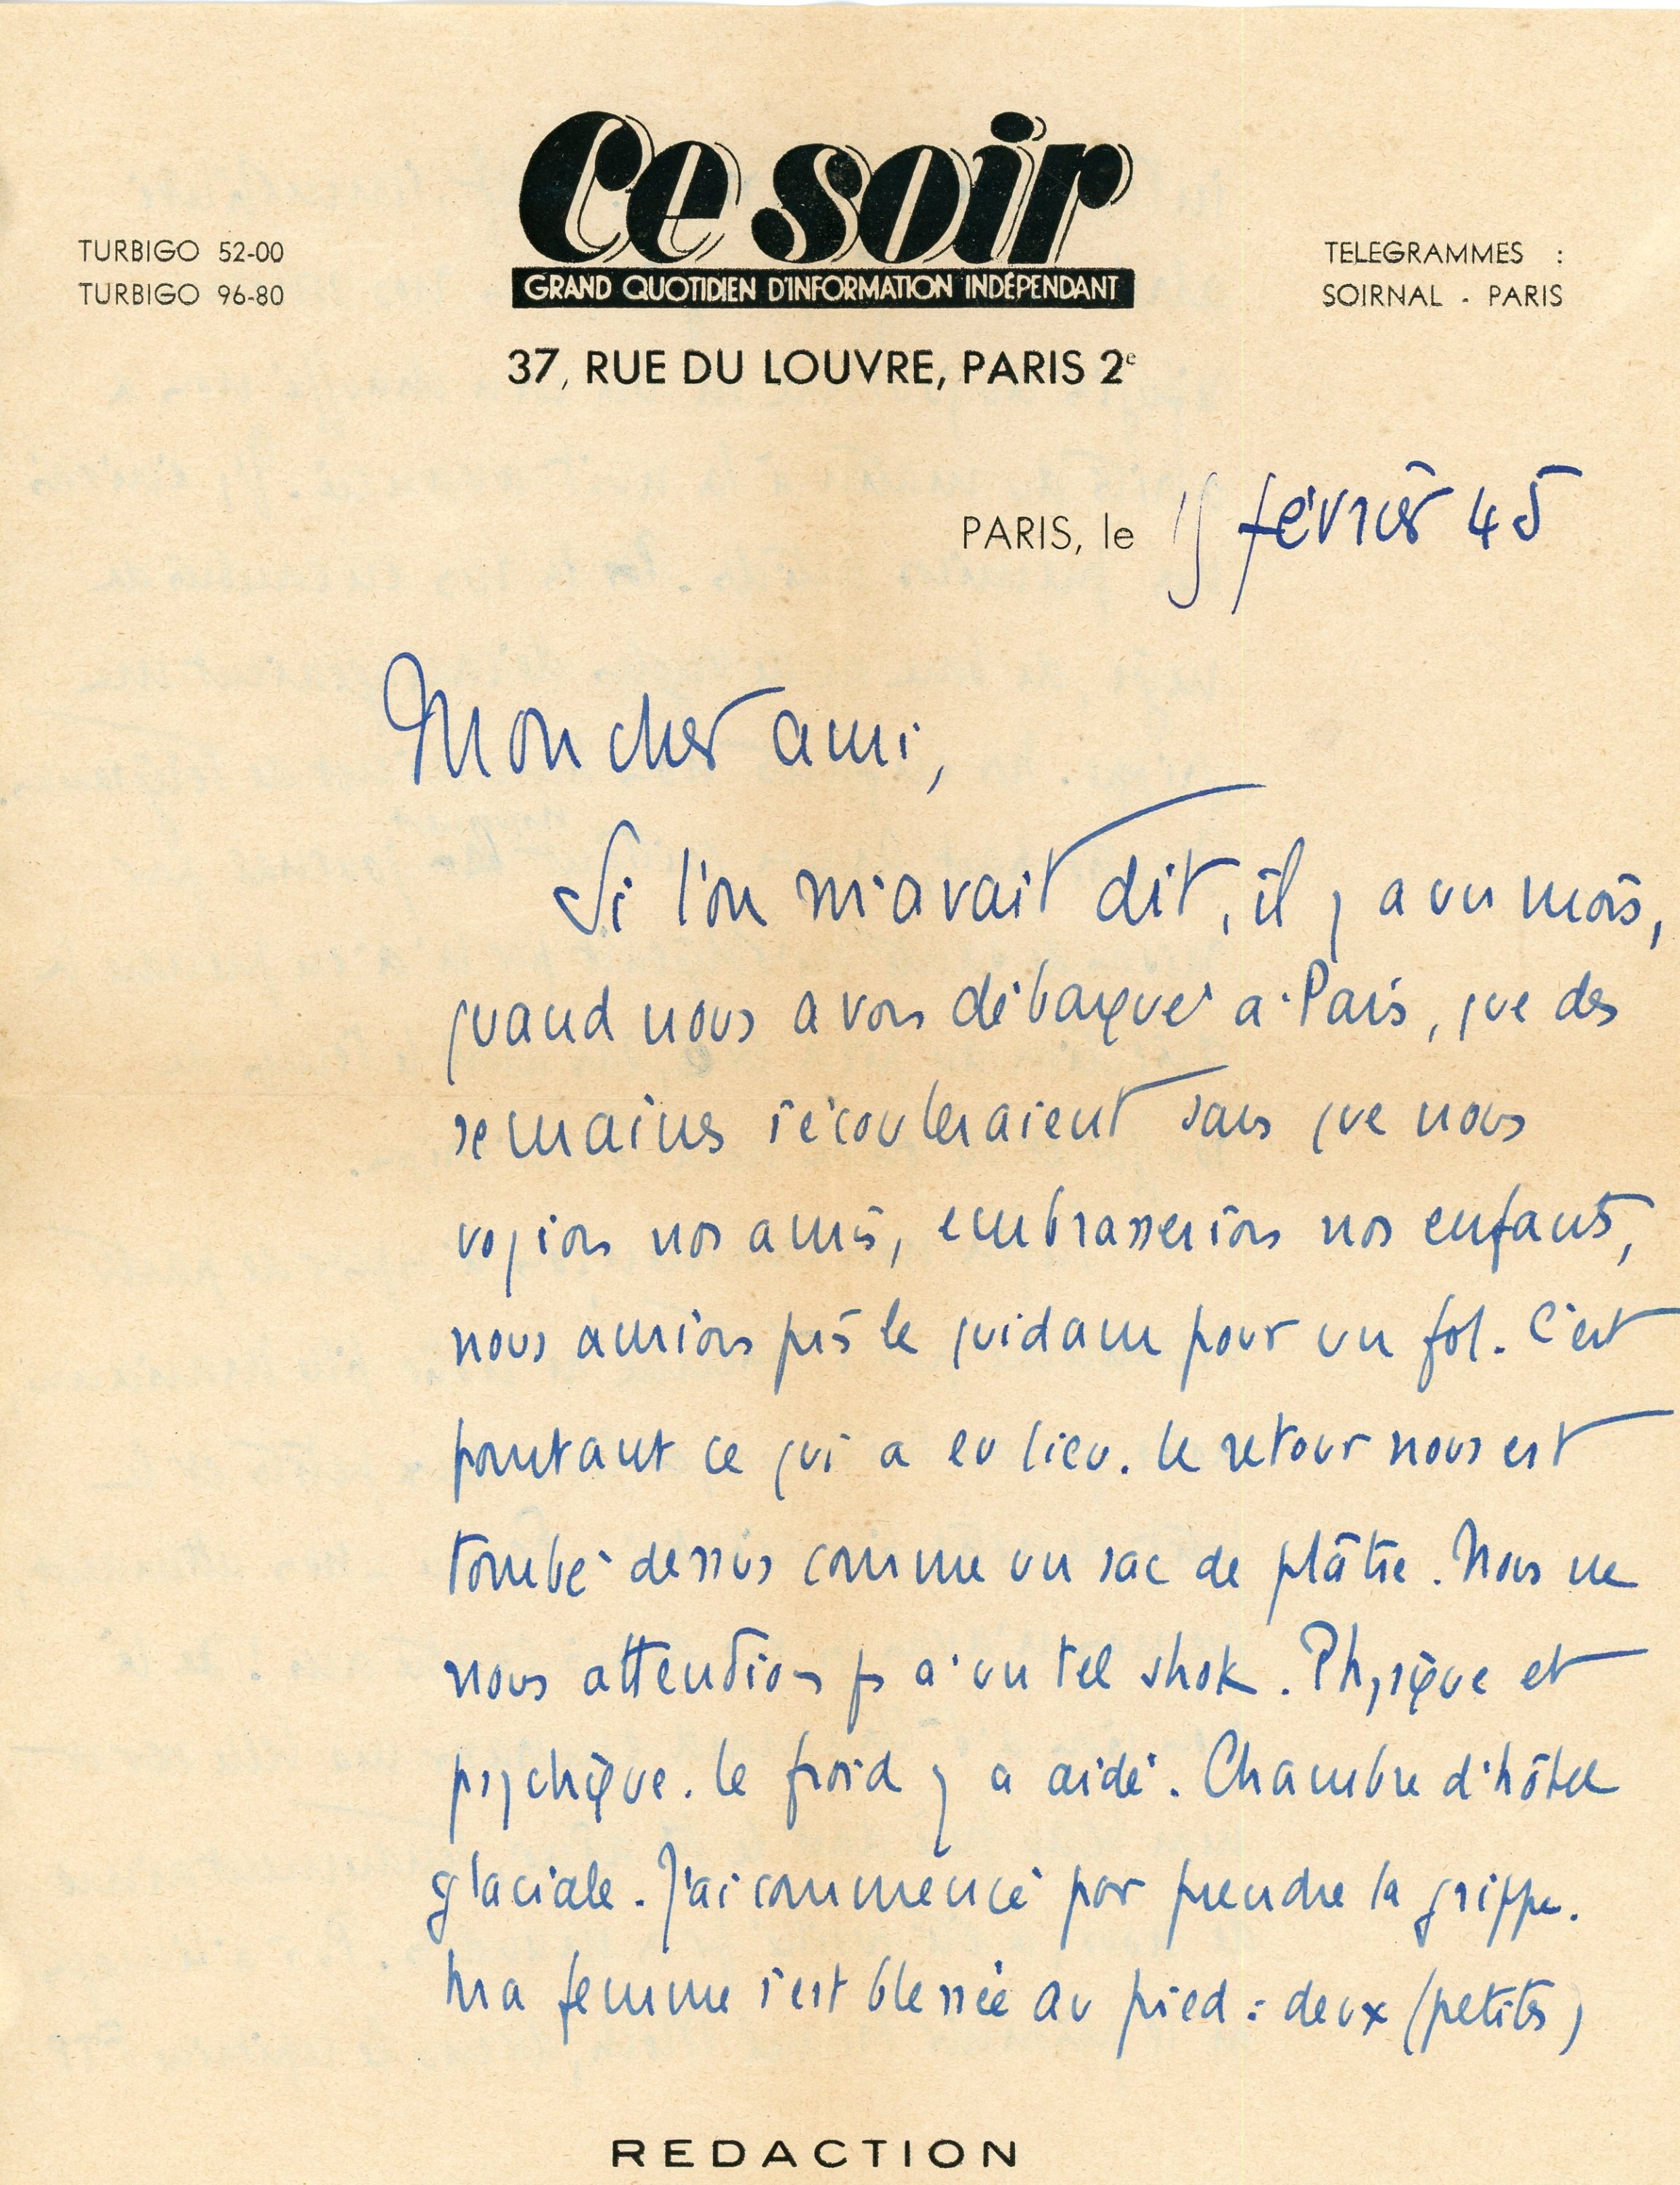 Ce soir
GRAND QUOTIDIEN D'INFORMATION INDÉPENDANT
TURBIGO 52-00
TURBIGO 96-80
TELEGRAMMES :
SOIRNAL - PARIS
37, RUE DU LOUVRE, PARIS 2e
PARIS, le février 45
Mon cher ami,
Si l'on m'avait dit, il y a un mois,
quand nous avons débarqué à Paris, que des
semaines s'écouleraient sans que nous
voyions nos amis, embrasserions nos enfants,
nous aurions pris le quidam pour un fol. C'est
pourtant ce qui a eu lieu. Le retour nous est
tombé dessus comme un sac de plâtre. Nous ne
nous attendions ps à un tel shok. Physique et
psychique. Le froid y a aidé. Chambre d'hôtel
glaciale. J'ai commencé par prendre la grippe.
Ma femme s'est blessée au pied : deux (petits)
REDACTION